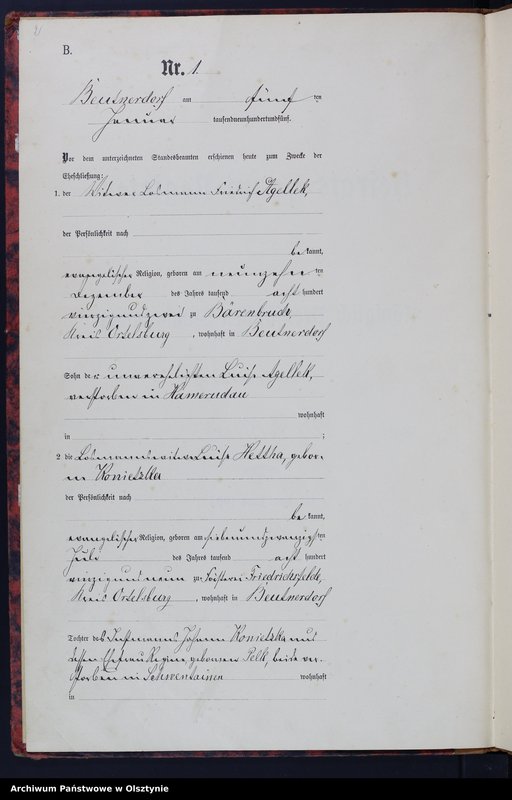 B.
Nr. 1.
Beutnerdorf am fünf ten
Januar tausendneunhundertundfünf.
Vor dem unterzeichneten Standesbeamten erschienen heute zum Zwecke der
Eheschließung:
1. der Witwer Losmann Friedrich Agellek,
der Persönlichkeit nach
be kannt,
evangelischer Religion, geboren am neunzehn ten
Dezember des Jahres tausend acht hundert
vierzigundzwei zu Bärenbruch,
Kreis Ortelsburg, wohnhaft in Beutnerdorf
Sohn der unverehelichten Luise Agellek,
verstorben in Kamerudau
wohnhaft
in ;
2. die Losmannswitwe Luise Hettha, gebore-
ne Konietzka
der Persönlichkeit nach
be kannt,
evangelischer Religion, geboren am siebenundzwanzigsten
Juli des Jahres tausend acht hundert
vierzigundneun zu Försterei Friedrichsfelde,
Kreis Ortelsburg, wohnhaft in Beutnerdorf
Tochter des Instmanns Johann Konietzka und
dessen Ehefrau Regine geborene Pelk, beide ver-
storben in Schwentainen wohnhaft
in
Archiwum Państwowe w Olsztynie